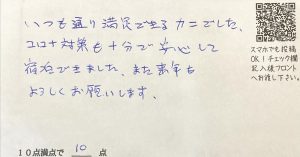 いつも通り満足できるカニでした。
コロナ対策も十分で安心して
宿泊できました。また来年も
よろしくお願いします。
スマホでも投稿
OK！チェック欄
記入後フロント
へお渡し下さい。
10点満点で 10 点